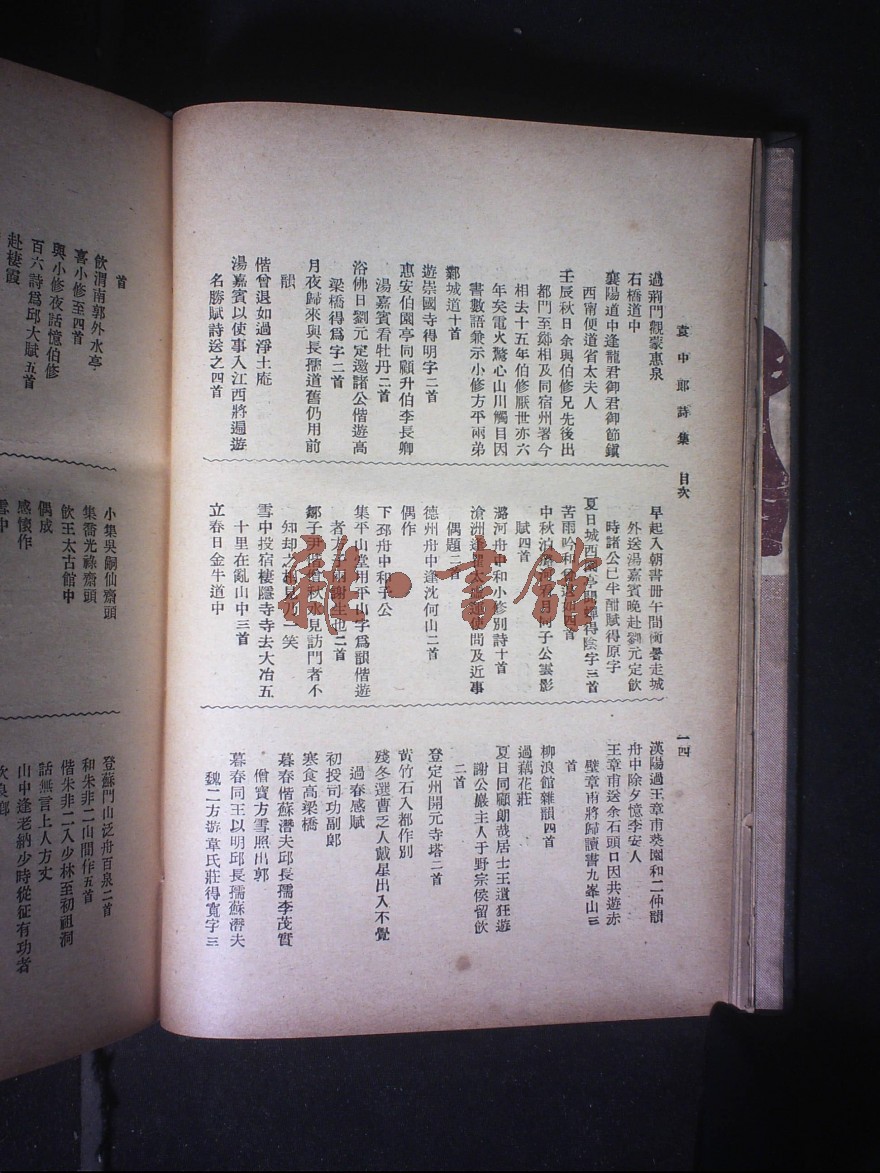 袁中郎詩集 目次
一四
過荆門觀蒙惠泉
石橋道中
襄陽道中逢龍君御君御節鎭
西甯便道省太夫人
壬辰秋日余與伯修兄先後出
都門至鄚相及同宿州署今
相去十五年伯修厭世亦六
年矣電火驚心山川觸目因
書數語兼示小修方平兩弟
鄴城道十首
遊崇國寺得明字二首
惠安伯園亭同顧升伯李長卿
湯嘉賓看牡丹二首
浴佛日劉元定邀諸公偕遊高
梁橋得爲字二首
月夜歸來與長孺道舊仍用前
韻
偕曾退如過淨土庵
湯嘉賓以使事入江西將遍遊
名勝賦詩送之四首
早起入朝書册午間衝暑走城
外送湯嘉賓晚赴劉元定飲
時諸公已半酣賦得原字
夏日城西
得陰字三首
苦雨吟和
四首
中秋泊潞河
子公雲影
賦四首
潞河舟中和小修別詩十首
滄洲逢
使間及近事
偶題二首
德州舟中逢沈何山二首
偶作
下邳舟中和子公
集平山堂用平山字爲韻偕遊
者
謝生也二首
鄒子尹
秋水見訪門者不
知却之
見乃一笑
雪中投宿棲隱寺寺去大冶五
十里在亂山中三首
立春日金牛道中
漢陽過王章甫葵園和二仲韻
舟中除夕憶李安人
王章甫送余石頭口因共遊赤
壁章甫將歸讀書九峯山三
首
柳浪館雜韻四首
過藕花莊
夏日同顧朗哉居士王遺狂遊
謝公巖主人于野宗侯留飲
二首
登定州開元寺塔二首
黃竹石入都作別
殘冬選曹乏人戴星出入不覺
過春感賦
初授司功副郎
寒食高梁橋
暮春偕蘇潛夫邱長孺李茂實
僧寶方雪照出郭
暮春同王以明邱長孺蘇潛夫
魏二方遊韋氏莊得寬字三
首
飲渭南郭外水亭
喜小修至四首
與小修夜話憶伯修
百六詩爲邱大賦五首
赴棲霞
小集吳嗣仙齋頭
集喬光祿齋頭
飲王太古館中
偶成
感懷作
雪中
登蘇門山泛舟百泉二首
和朱非二山間作五首
偕朱非二入少林至初祖洞
話無言上人方丈
山中逢老納少時從征有功者
龍·書館